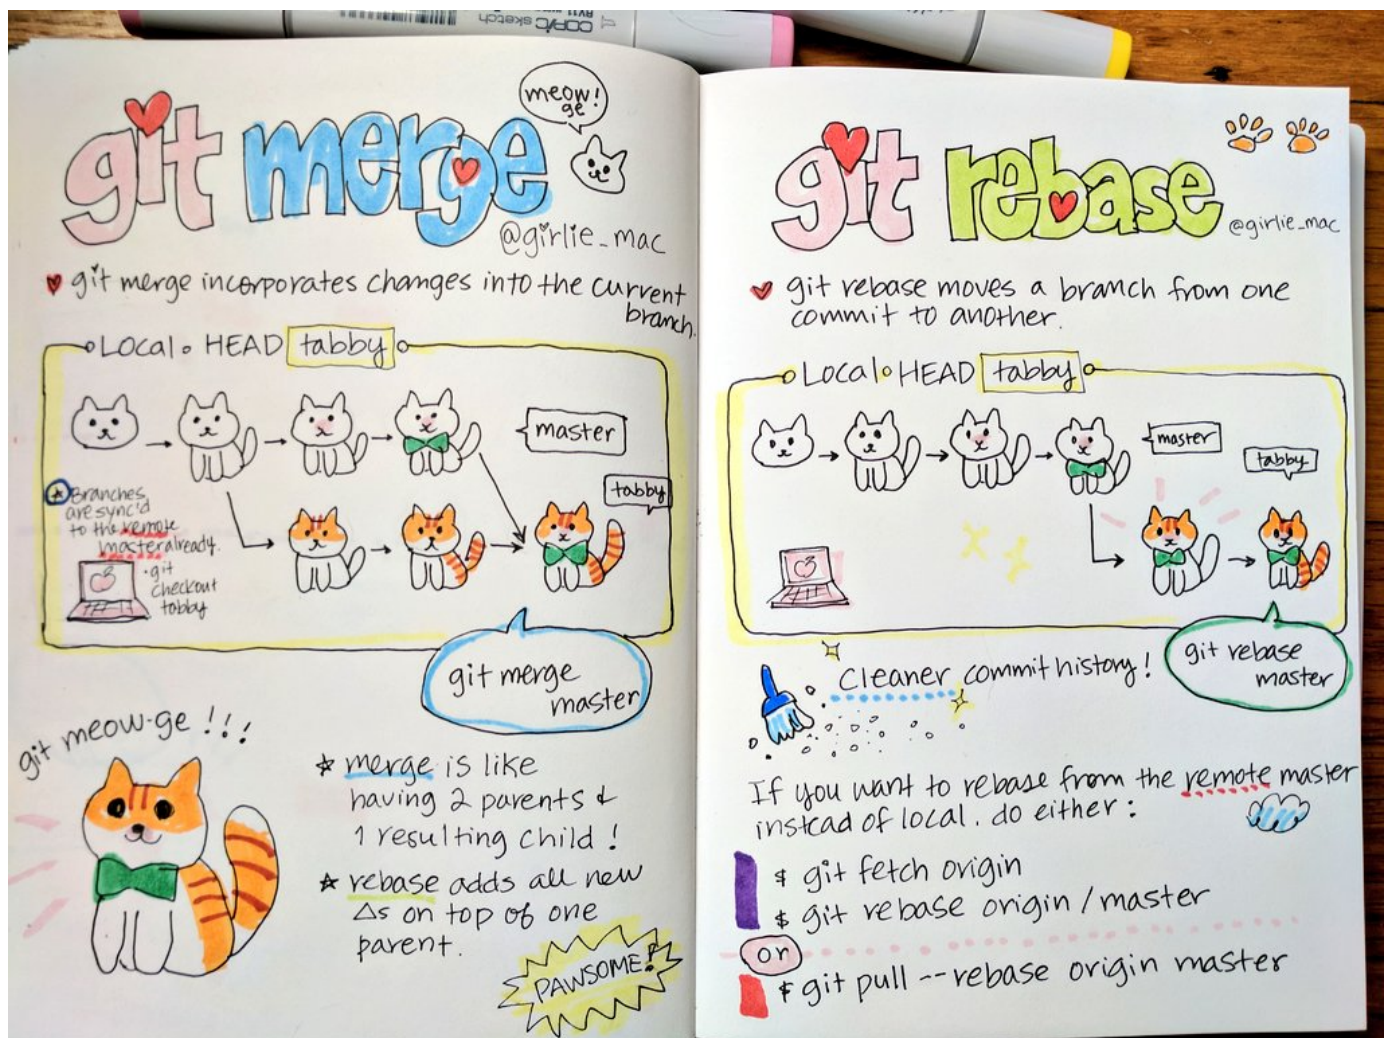 COPIC sketch
meow!
ge
git merge
@girlie_mac
git merge incorporates changes into the current
branch.
Local HEAD tabby
master
tabby
Branches
are sync'd
to the remote
master already.
• git
checkout
tabby
git merge
master
git meow-ge !!!
merge is like
having 2 parents &
1 resulting child !
rebase adds all new
Δs on top of one
parent.
PAWSOME!
git rebase
@girlie_mac
git rebase moves a branch from one
commit to another.
Local HEAD tabby
master
tabby
git rebase
master
Cleaner commit history !
If you want to rebase from the remote master
instead of local. do either :
$ git fetch origin
$ git rebase origin/master
or
$ git pull --rebase origin master